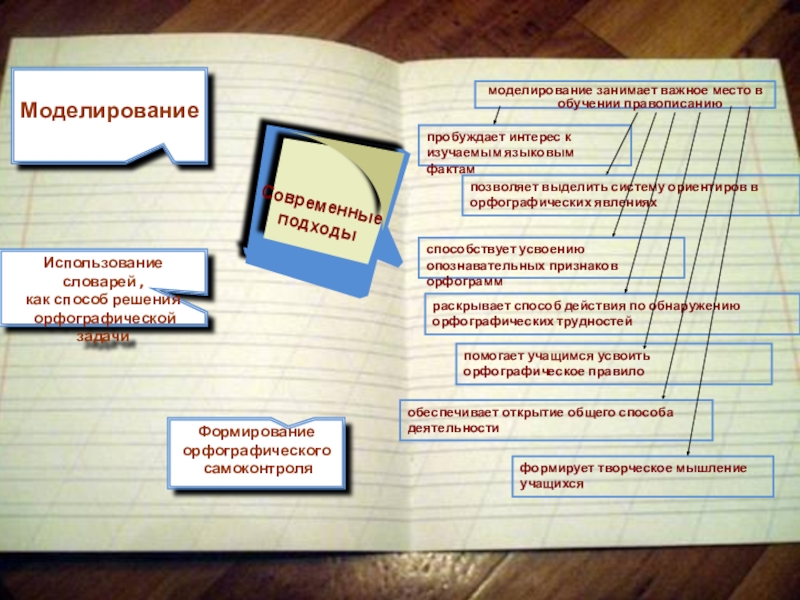 Моделирование
Современные
подходы
Использование
словарей ,
как способ решения
орфографической
задачи
Формирование
орфографического
самоконтроля
моделирование занимает важное место в
обучении правописанию
пробуждает интерес к
изучаемым языковым
фактам
позволяет выделить систему ориентиров в
орфографических явлениях
способствует усвоению
опознавательных признаков
орфограмм
раскрывает способ действия по обнаружению
орфографических трудностей
помогает учащимся усвоить
орфографическое правило
обеспечивает открытие общего способа
деятельности
формирует творческое мышление
учащихся